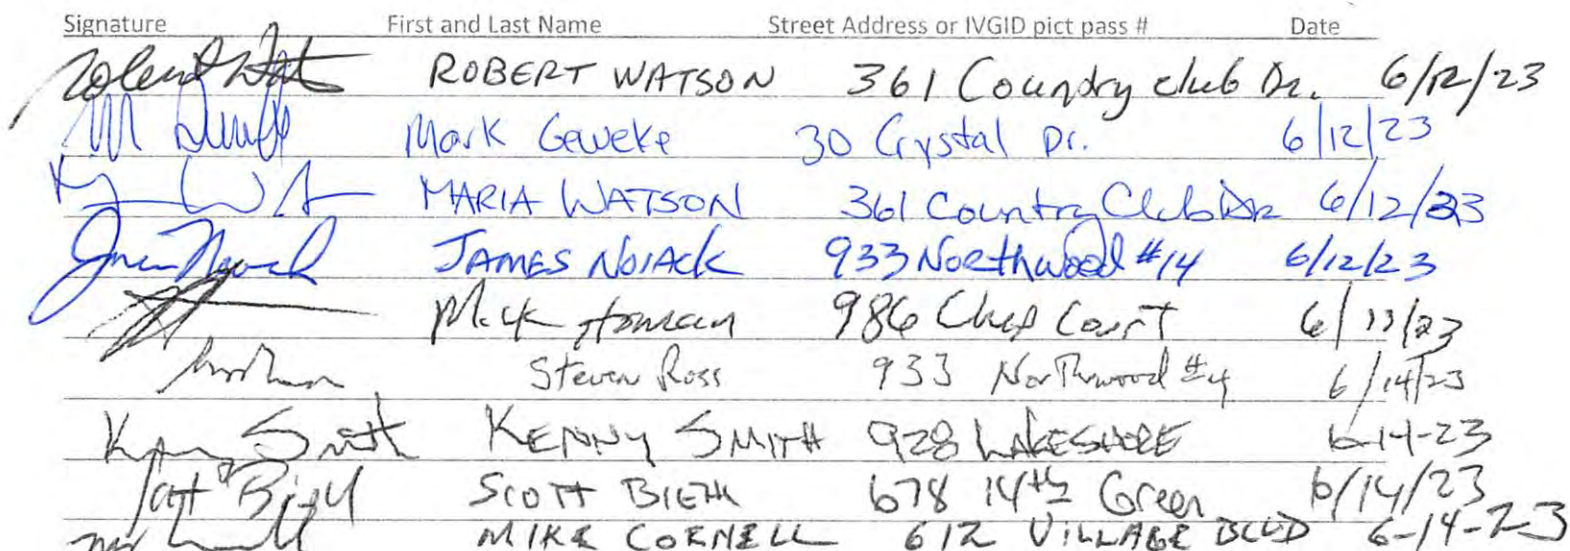 Signature First and Last Name Street Address or IVGID pict pass # Date
ROBERT WATSON 361 Country club Dr. 6/12/23
Mark Geweke 30 Crystal Dr. 6/12/23
MARIA WATSON 361 Country Club Dr 6/12/23
JAMES NOVACK 933 Northwood #14 6/12/23
Mick Homan 986 Court 6/13/23
Steven Ross 933 Northwood #4 6/14/23
Kenny Smith KENNY SMITH 928 LAKESHORE 6-14-23
SCOTT 678 14th Green 6/14/23
MIKE CORNELL 612 VILLAGE BLVD 6-14-23